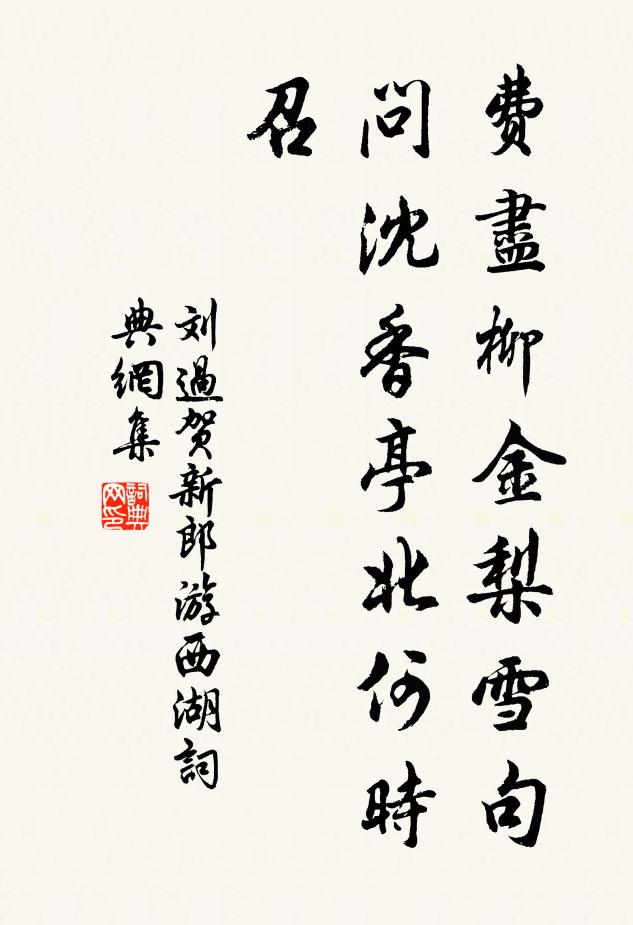 費盡柳金梨雪句
問沈香亭北何時
召
刘過贺新郎游西湖詞
典網集
詞典
网印